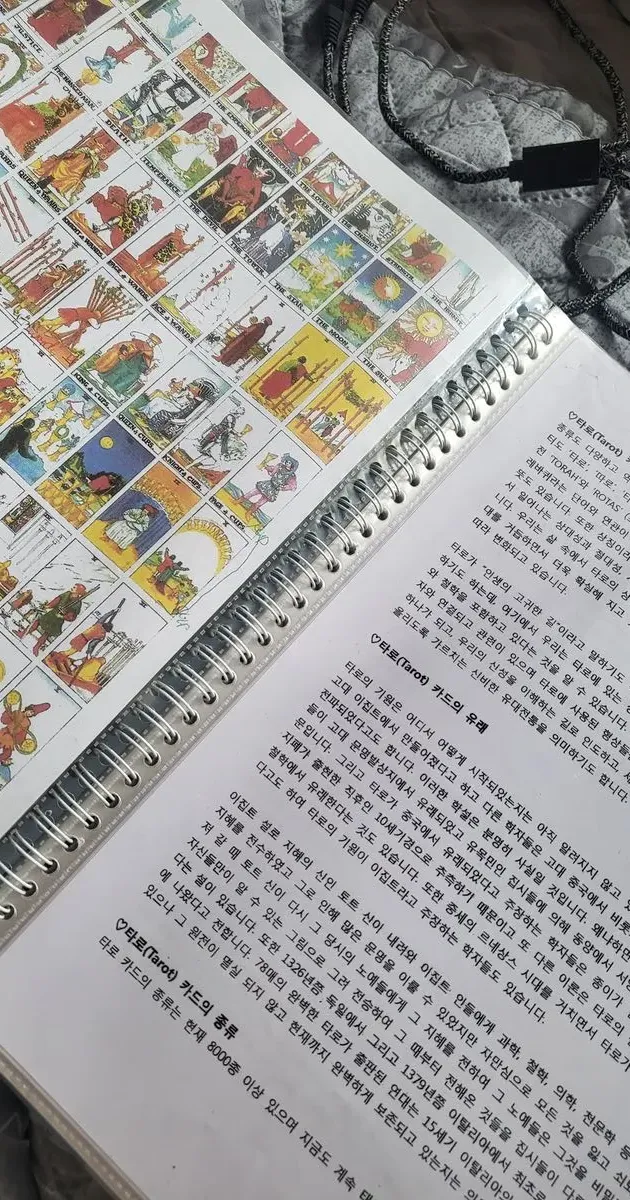 JUSTICE
THE HANGED MAN
DEATH
TEMPERANCE
THE DEVIL
THE TOWER
THE STAR
THE MOON
THE SUN
THE EMPRESS
THE EMPEROR
THE LOVERS
THE CHARIOT
STRENGTH
THE HERMIT
QUEEN of WANDS
ACE of WANDS
KING of CUPS
QUEEN of CUPS
KNIGHT of CUPS
PAGE of CUPS
♡타로(Tarot)
종류도 다양하고
타도 '타로', '따로',
전 'TORAH'와 ROTAS
레바퀴라는 단어와 연관이
뜻도 있습니다. 또한 상징이라
서 일어나는 상대성과 절대성,
니다. 우리는 삶 속에서 타로의 상
대를 거듭하면서 더욱 확실해 지고
따라 변화되고 있습니다.
타로가 "인생의 고귀한 길"이라고 말하기도
하기도 하는데, 여기에서 우리는 타로에 있는
와 철학을 포함하고 있다는 것을 알 수 있습니다.
자와 연결되고 관련이 있으며 타로에 사용된 형상들
하나가 되고, 우리의 신성을 이해하는 길로 인도하고
올리도록 가르치는 신비한 유대전통을 의미하기도 합니다.
♡타로(Tarot) 카드의 유래
타로의 기원은 어디서 어떻게 시작되었는지는 아직 알려지지 않고
고대 이집트에서 만들어졌다고 하고 다른 학자들은 고대 중국에서 비롯
전파되었다고도 합니다. 이러한 학설은 분명히 사실일 것입니다. 왜냐하면
들이 고대 문명발상지에서 유래되었고 유목민인 집시들에 의해 동양에서 서
문입니다. 그리고 타로가 중국에서 유래되었다고 주장하는 학자들은 종이가
지폐가 출현한 직후인 10세기경으로 추측하기 때문이고 또 다른 이론은 타로의
철학에서 유래한다는 것도 있습니다. 또한 중세의 르네상스 시대를 거치면서 타로가
다고도 하여 타로의 기원이 이집트라고 주장하는 학자들도 있습니다.
이집트 설로 지혜의 신인 토트 신이 내려와 이집트 인들에게 과학, 철학, 의학, 천문학 등
지혜를 전수하였고 그로 인해 많은 문명을 이룰 수 있었지만 자만심으로 모든 것을 잃고
저 갈 때 토트 신이 다시 그 당시의 노예들에게 그 지혜를 전하여 그 노예들은 그것을 비밀
자신들만이 알 수 있는 그림으로 그려 전승하여 그 때부터 전해온 것들을 집시들이
다는 설이 있습니다. 또한 1326년쯤, 독일에서 그리고 1379년쯤 이탈리아에서 최초
에 나왔다고 전합니다. 78매의 완벽한 타로가 출판된 연대는 15세기 이탈리아
있으나 그 원전이 멸실 되지 않고 현재까지 완벽하게 보존되고 있는지는
♡타로(Tarot) 카드의 종류
타로 카드의 종류는 현재 8000종 이상 있으며 지금도 계속